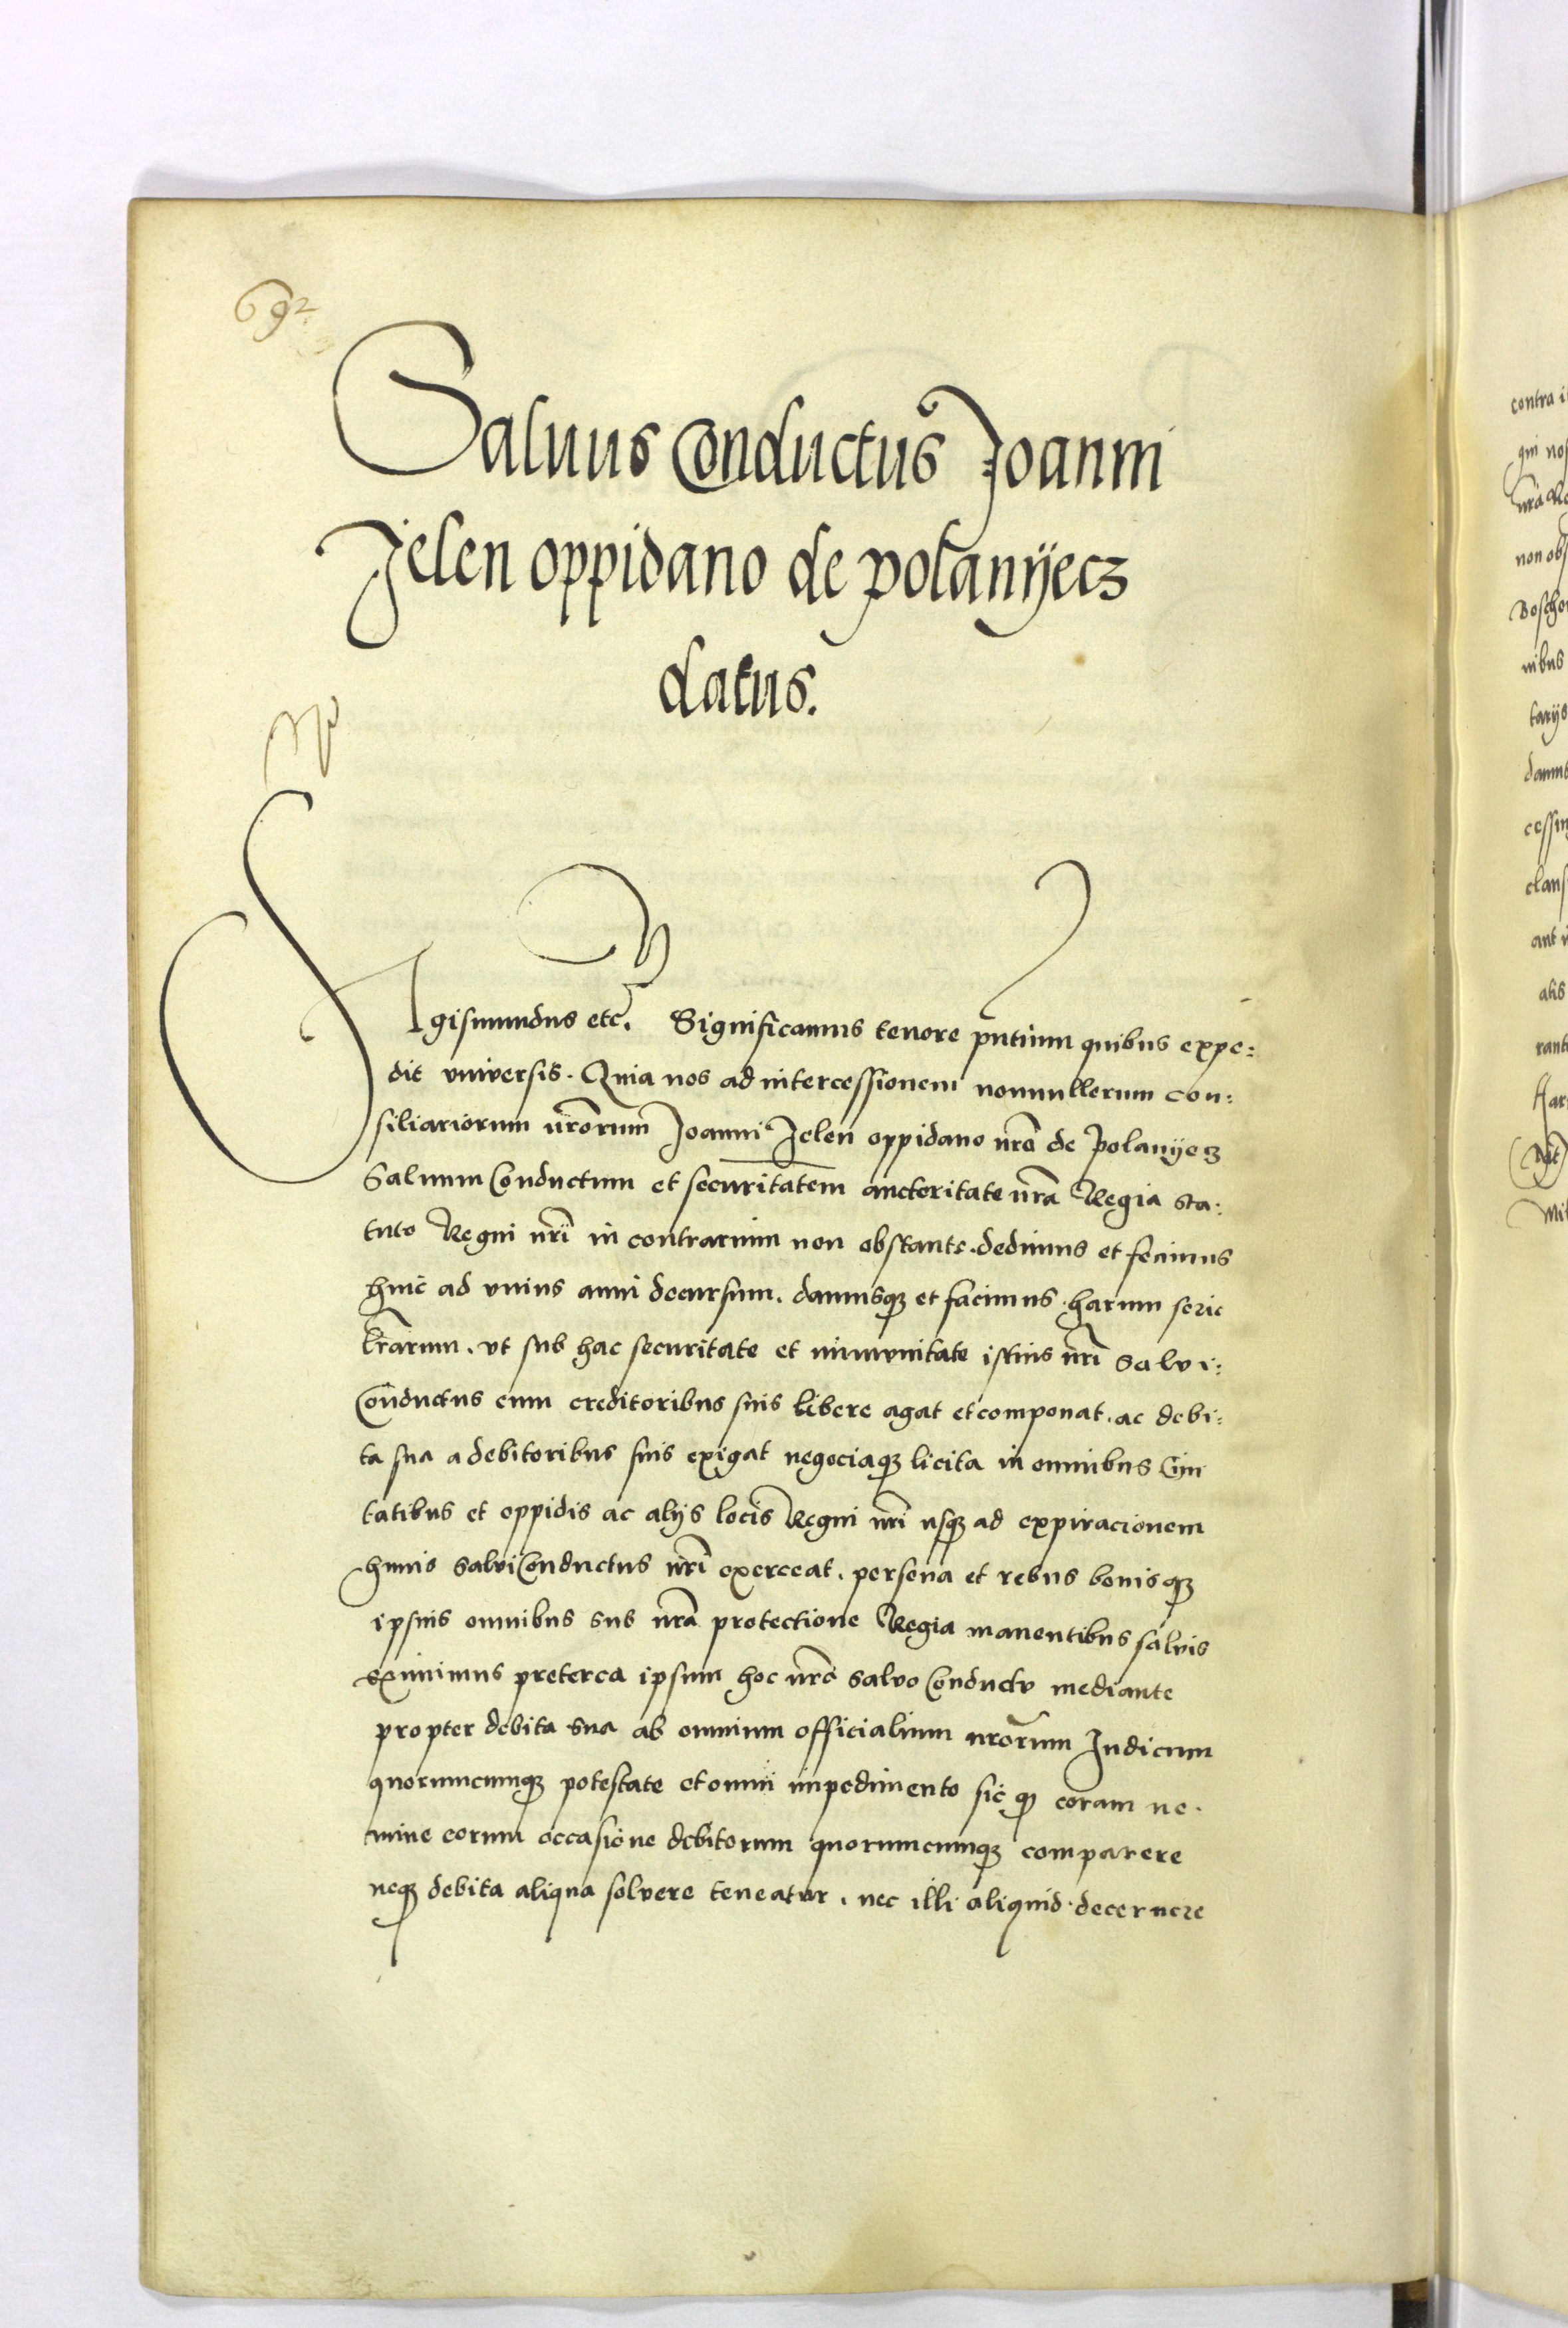 692
Saluus Conductus Joanni
Jelen oppidano de polanyecz
datus.
Sigismundus etc. Significamus tenore pntium quibus expe:
dit vniversis. Quia nos ad intercessionem nonnullorum con:
siliariorum nrorum Joanni Jelen oppidano nro de Polanyecz
Saluum Conductum et securitatem auctoritate nra Regia sta:
tuto Regni nri in contrarium non obstante. dedimus et fecimus
huic ad vnius anni decursum. damusq3 et facimus. harum serie
lrarum. vt sub hac securitate et immunitate istius nri salvi:
Conductus cum creditoribus suis libere agat et componat. ac debi:
ta sua a debitoribus suis exigat negociaq3 licita in omnibus Civi
tatibus et oppidis ac alijs locis Regni nri usq3 ad expiracionem
huius salvi Conductus nri exerceat. persona et rebus bonisq3
ipsius omnibus sub nra protectione Regia manentibus salvis
eximimus preterea ipsum hoc nro salvo Conductu mediante
propter debita sua ab omnium officialium nrorum Judicum
quorumcumq3 potestate et omni impedimento sic q3 coram ne.
mine eorum occasione debitorum quorumcumq3 comparere
neq3 debita aliqua solvere teneatur. nec illi aliquid decernere
contra i
qui no
nra Re
non obs
nibus
tarijs
damm
cessin
claus
aut
alis
rant
Har
Dat